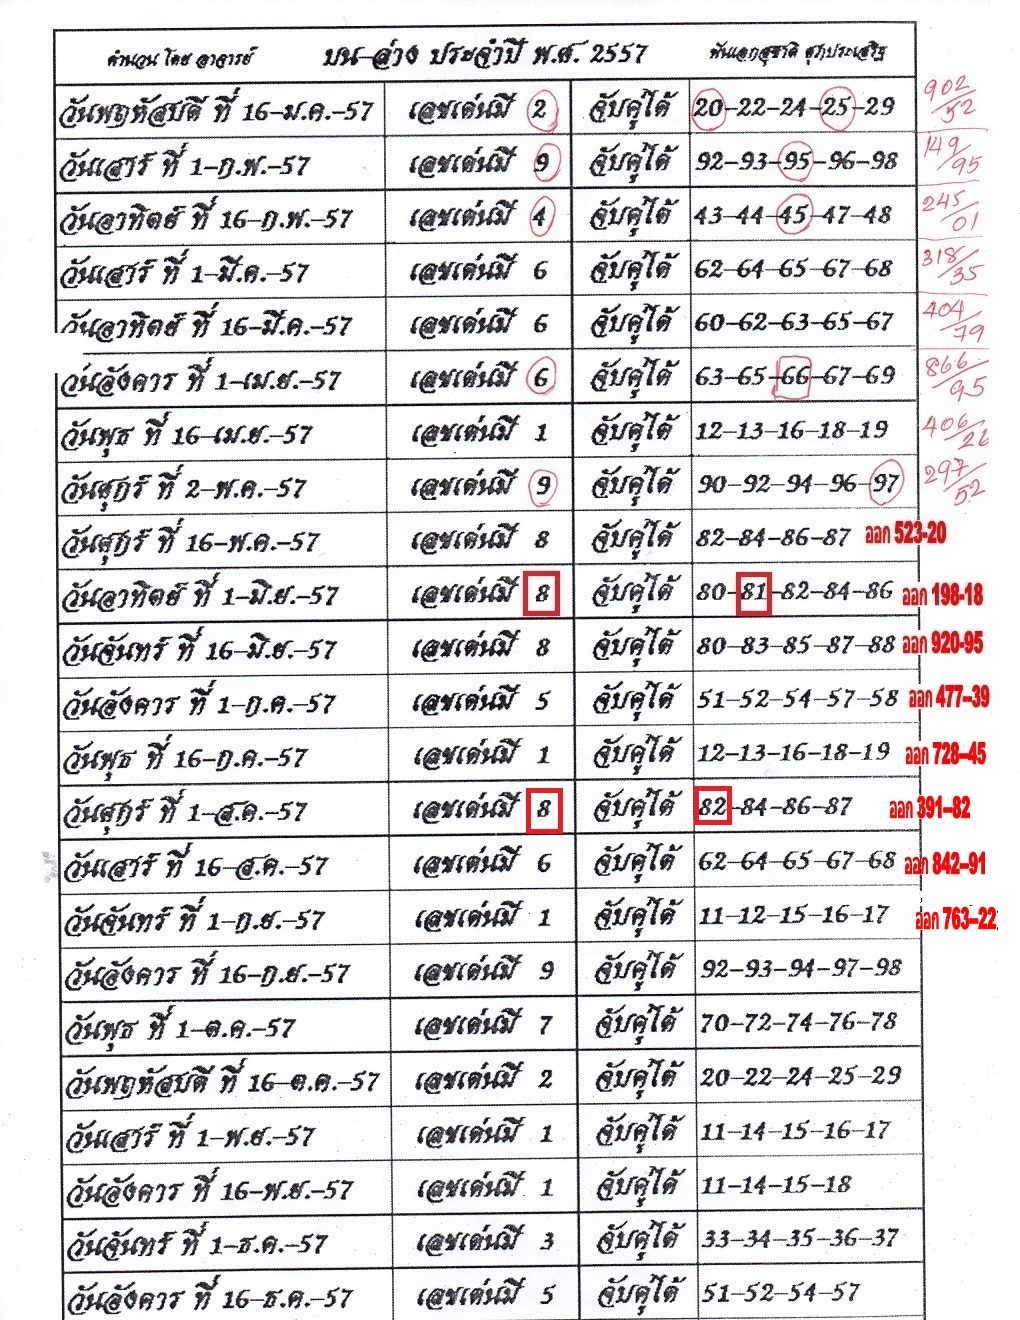 คำนวน โดย อาจารย์ บน-ล่าง ประจำปี พ.ศ. 2557 พันเอกสุชาติ สุภประเสริฐ
วันพฤหัสบดี ที่ 16-ม.ค.-57 เลขเด่นมี 2 จับคู่ได้ 20-22-24-25-29 902/52
วันเสาร์ ที่ 1-ก.พ.-57 เลขเด่นมี 9 จับคู่ได้ 92-93-95-96-98 149/95
วันอาทิตย์ ที่ 16-ก.พ.-57 เลขเด่นมี 4 จับคู่ได้ 43-44-45-47-48 245/01
วันเสาร์ ที่ 1-มี.ค.-57 เลขเด่นมี 6 จับคู่ได้ 62-64-65-67-68 318/35
วันอาทิตย์ ที่ 16-มี.ค.-57 เลขเด่นมี 6 จับคู่ได้ 60-62-63-65-67 404/79
วันอังคาร ที่ 1-เม.ย.-57 เลขเด่นมี 6 จับคู่ได้ 63-65-66-67-69 866/95
วันพุธ ที่ 16-เม.ย.-57 เลขเด่นมี 1 จับคู่ได้ 12-13-16-18-19 406/
วันศุกร์ ที่ 2-พ.ค.-57 เลขเด่นมี 9 จับคู่ได้ 90-92-94-96-97 297/52
วันศุกร์ ที่ 16-พ.ค.-57 เลขเด่นมี 8 จับคู่ได้ 82-84-86-87 ออก 523-20
วันอาทิตย์ ที่ 1-มิ.ย.-57 เลขเด่นมี 8 จับคู่ได้ 80-81-82-84-86 ออก 198-18
วันจันทร์ ที่ 16-มิ.ย.-57 เลขเด่นมี 8 จับคู่ได้ 80-83-85-87-88 ออก 920-95
วันอังคาร ที่ 1-ก.ค.-57 เลขเด่นมี 5 จับคู่ได้ 51-52-54-57-58 ออก 477-39
วันพุธ ที่ 16-ก.ค.-57 เลขเด่นมี 1 จับคู่ได้ 12-13-16-18-19 ออก 728-45
วันศุกร์ ที่ 1-ส.ค.-57 เลขเด่นมี 8 จับคู่ได้ 82-84-86-87 ออก 391-82
วันเสาร์ ที่ 16-ส.ค.-57 เลขเด่นมี 6 จับคู่ได้ 62-64-65-67-68 ออก 842-91
วันจันทร์ ที่ 1-ก.ย.-57 เลขเด่นมี 1 จับคู่ได้ 11-12-15-16-17 ออก 763-22
วันอังคาร ที่ 16-ก.ย.-57 เลขเด่นมี 9 จับคู่ได้ 92-93-94-97-98
วันพุธ ที่ 1-ต.ค.-57 เลขเด่นมี 7 จับคู่ได้ 70-72-74-76-78
วันพฤหัสบดี ที่ 16-ต.ค.-57 เลขเด่นมี 2 จับคู่ได้ 20-22-24-25-29
วันเสาร์ ที่ 1-พ.ย.-57 เลขเด่นมี 1 จับคู่ได้ 11-14-15-16-17
วันอังคาร ที่ 16-พ.ย.-57 เลขเด่นมี 1 จับคู่ได้ 11-14-15-18
วันจันทร์ ที่ 1-ธ.ค.-57 เลขเด่นมี 3 จับคู่ได้ 33-34-35-36-37
วันอังคาร ที่ 16-ธ.ค.-57 เลขเด่นมี 5 จับคู่ได้ 51-52-54-57